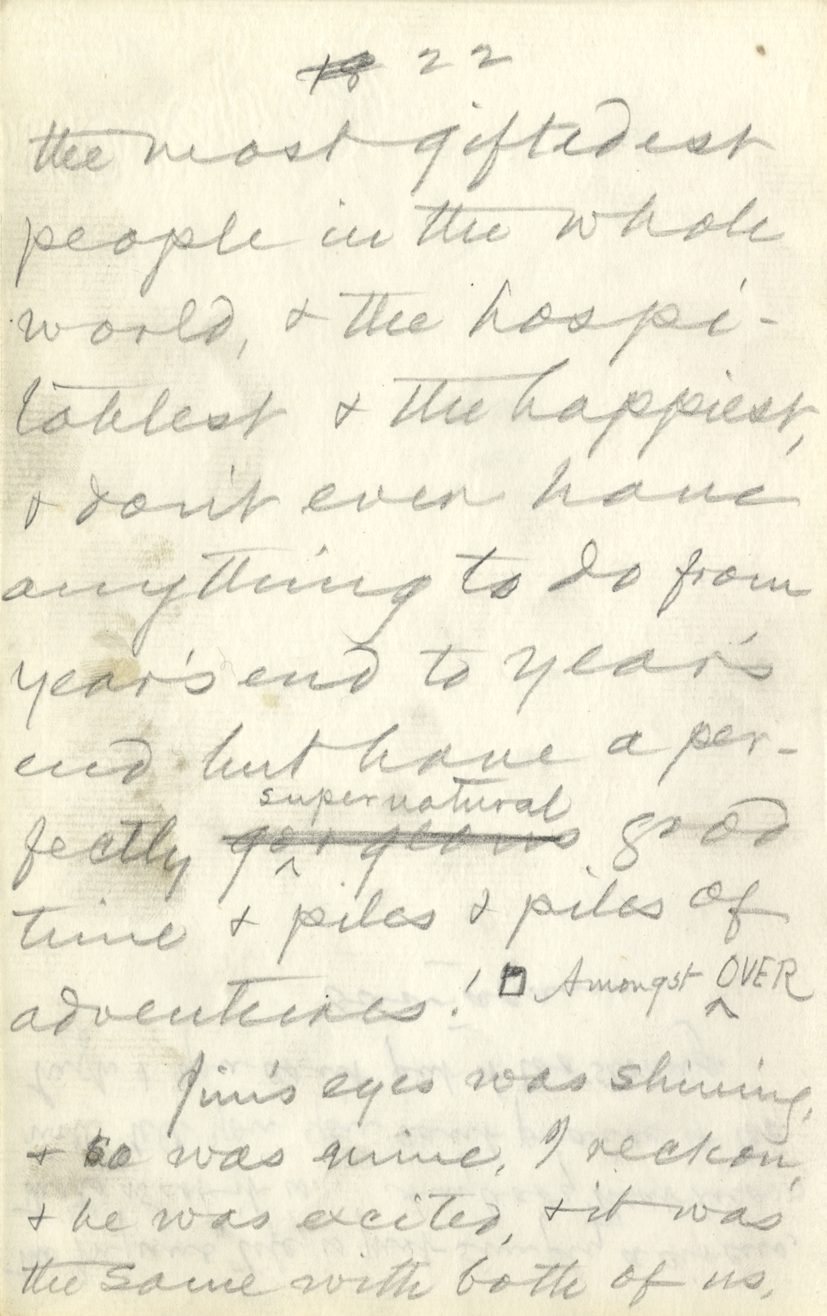 18 22
the most giftedest
people in the whole
world, & the hospi-
tablest & the happiest,
& don't ever have
anything to do from
year's end to year's
end but have a per-
supernatural
fectly gorgeous good
time & piles & piles of
adventures! Amongst OVER
Jim's eyes was shining,
& so was mine, I reckon,
& he was excited, & it was
the same with both of us.